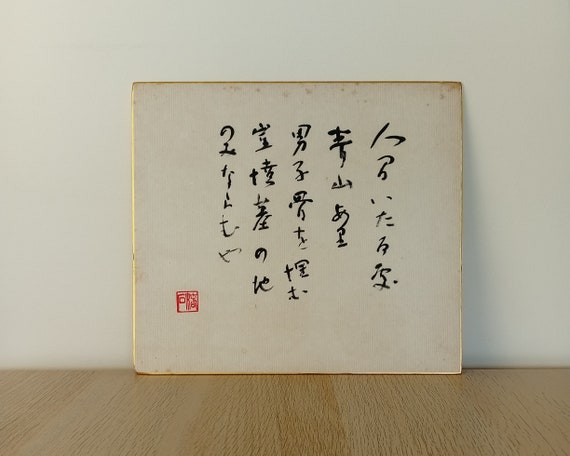 人間いたる處
青山あり
男子骨を埋む
豈墳墓の地
のみならむや